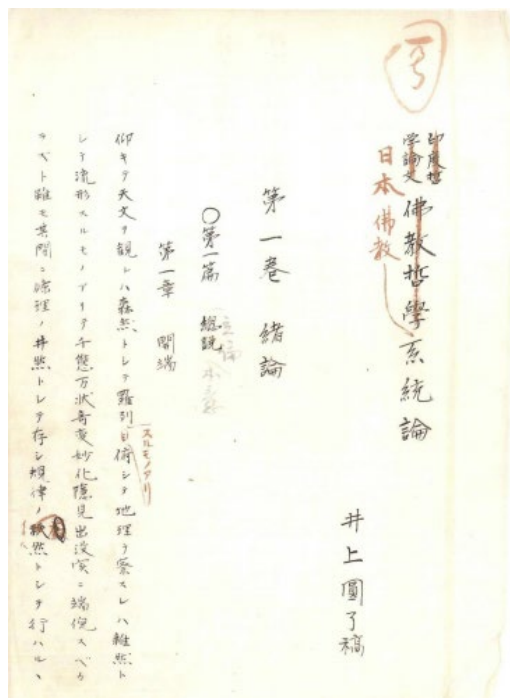 一号
印度哲
学論文
佛教哲學系統論
日本佛教
井上圓了稿
第一巻 緒論
〇第一篇 総説
第一章 開端
仰キテ天文ヲ観レハ森然トシテ羅列スルモノアリ俯シテ地理ヲ察スレハ雑然ト
シテ流形スルモノアリテ千態万状奇変妙化隠見出没実ニ端倪スベカ
ラズト雖モ其間ニ條理ノ井然トシテ存シ規律ノ秩然トシテ行ハルヽ